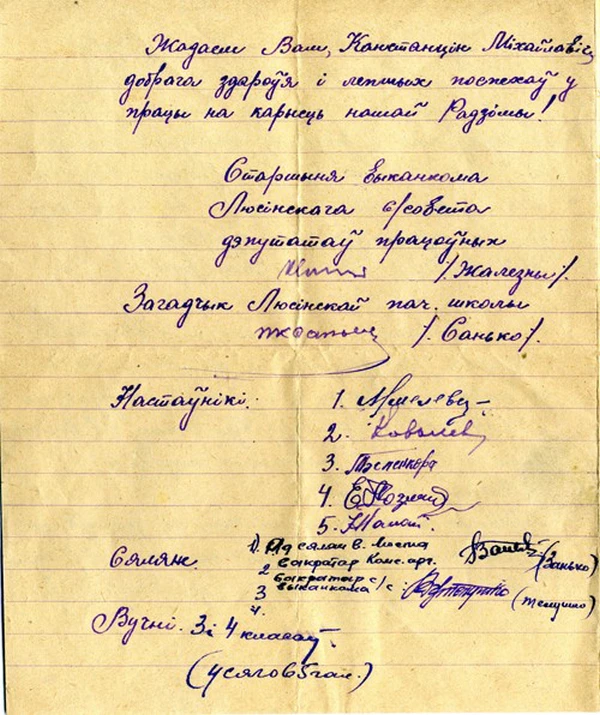 Жадаем Вам, Канстанцін Міхайлавіч,
добрага здароўя і лепшых поспехаў у
працы на карысць нашай Радзімы!
Старшыня выканкома
Люсінскага с/совета
дэпутатаў працоўных
/Жалезны/.
Загадчык Люсінскай пач. школы
/Санько/.
Настаўнікі:
1.
2. Ковалев
3.
4.
5.
Сяляж. 1) Ад сялян в.
2 Сакратар Комс. арг. (Занько)
Сакратар с/
3 выканкома с/с. (Телушко)
4.
Вучні. 3 і 4 класаў.
(Усяго 65 чал.)